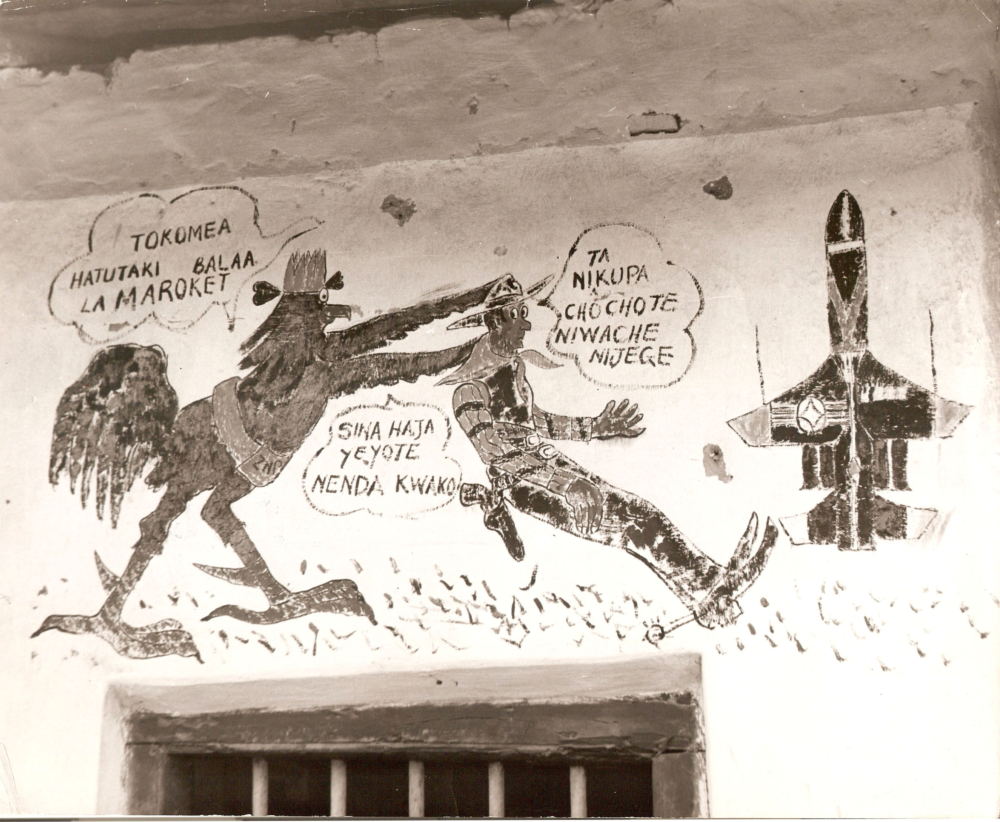 TOKOMEA
HATUTAKI BALAA
LA MAROKET
TA
NIKUPA
CHOCHOTE
NIWACHE
NIJEGE
SINA HAJA
YEYOTE
NENDA KWAKO